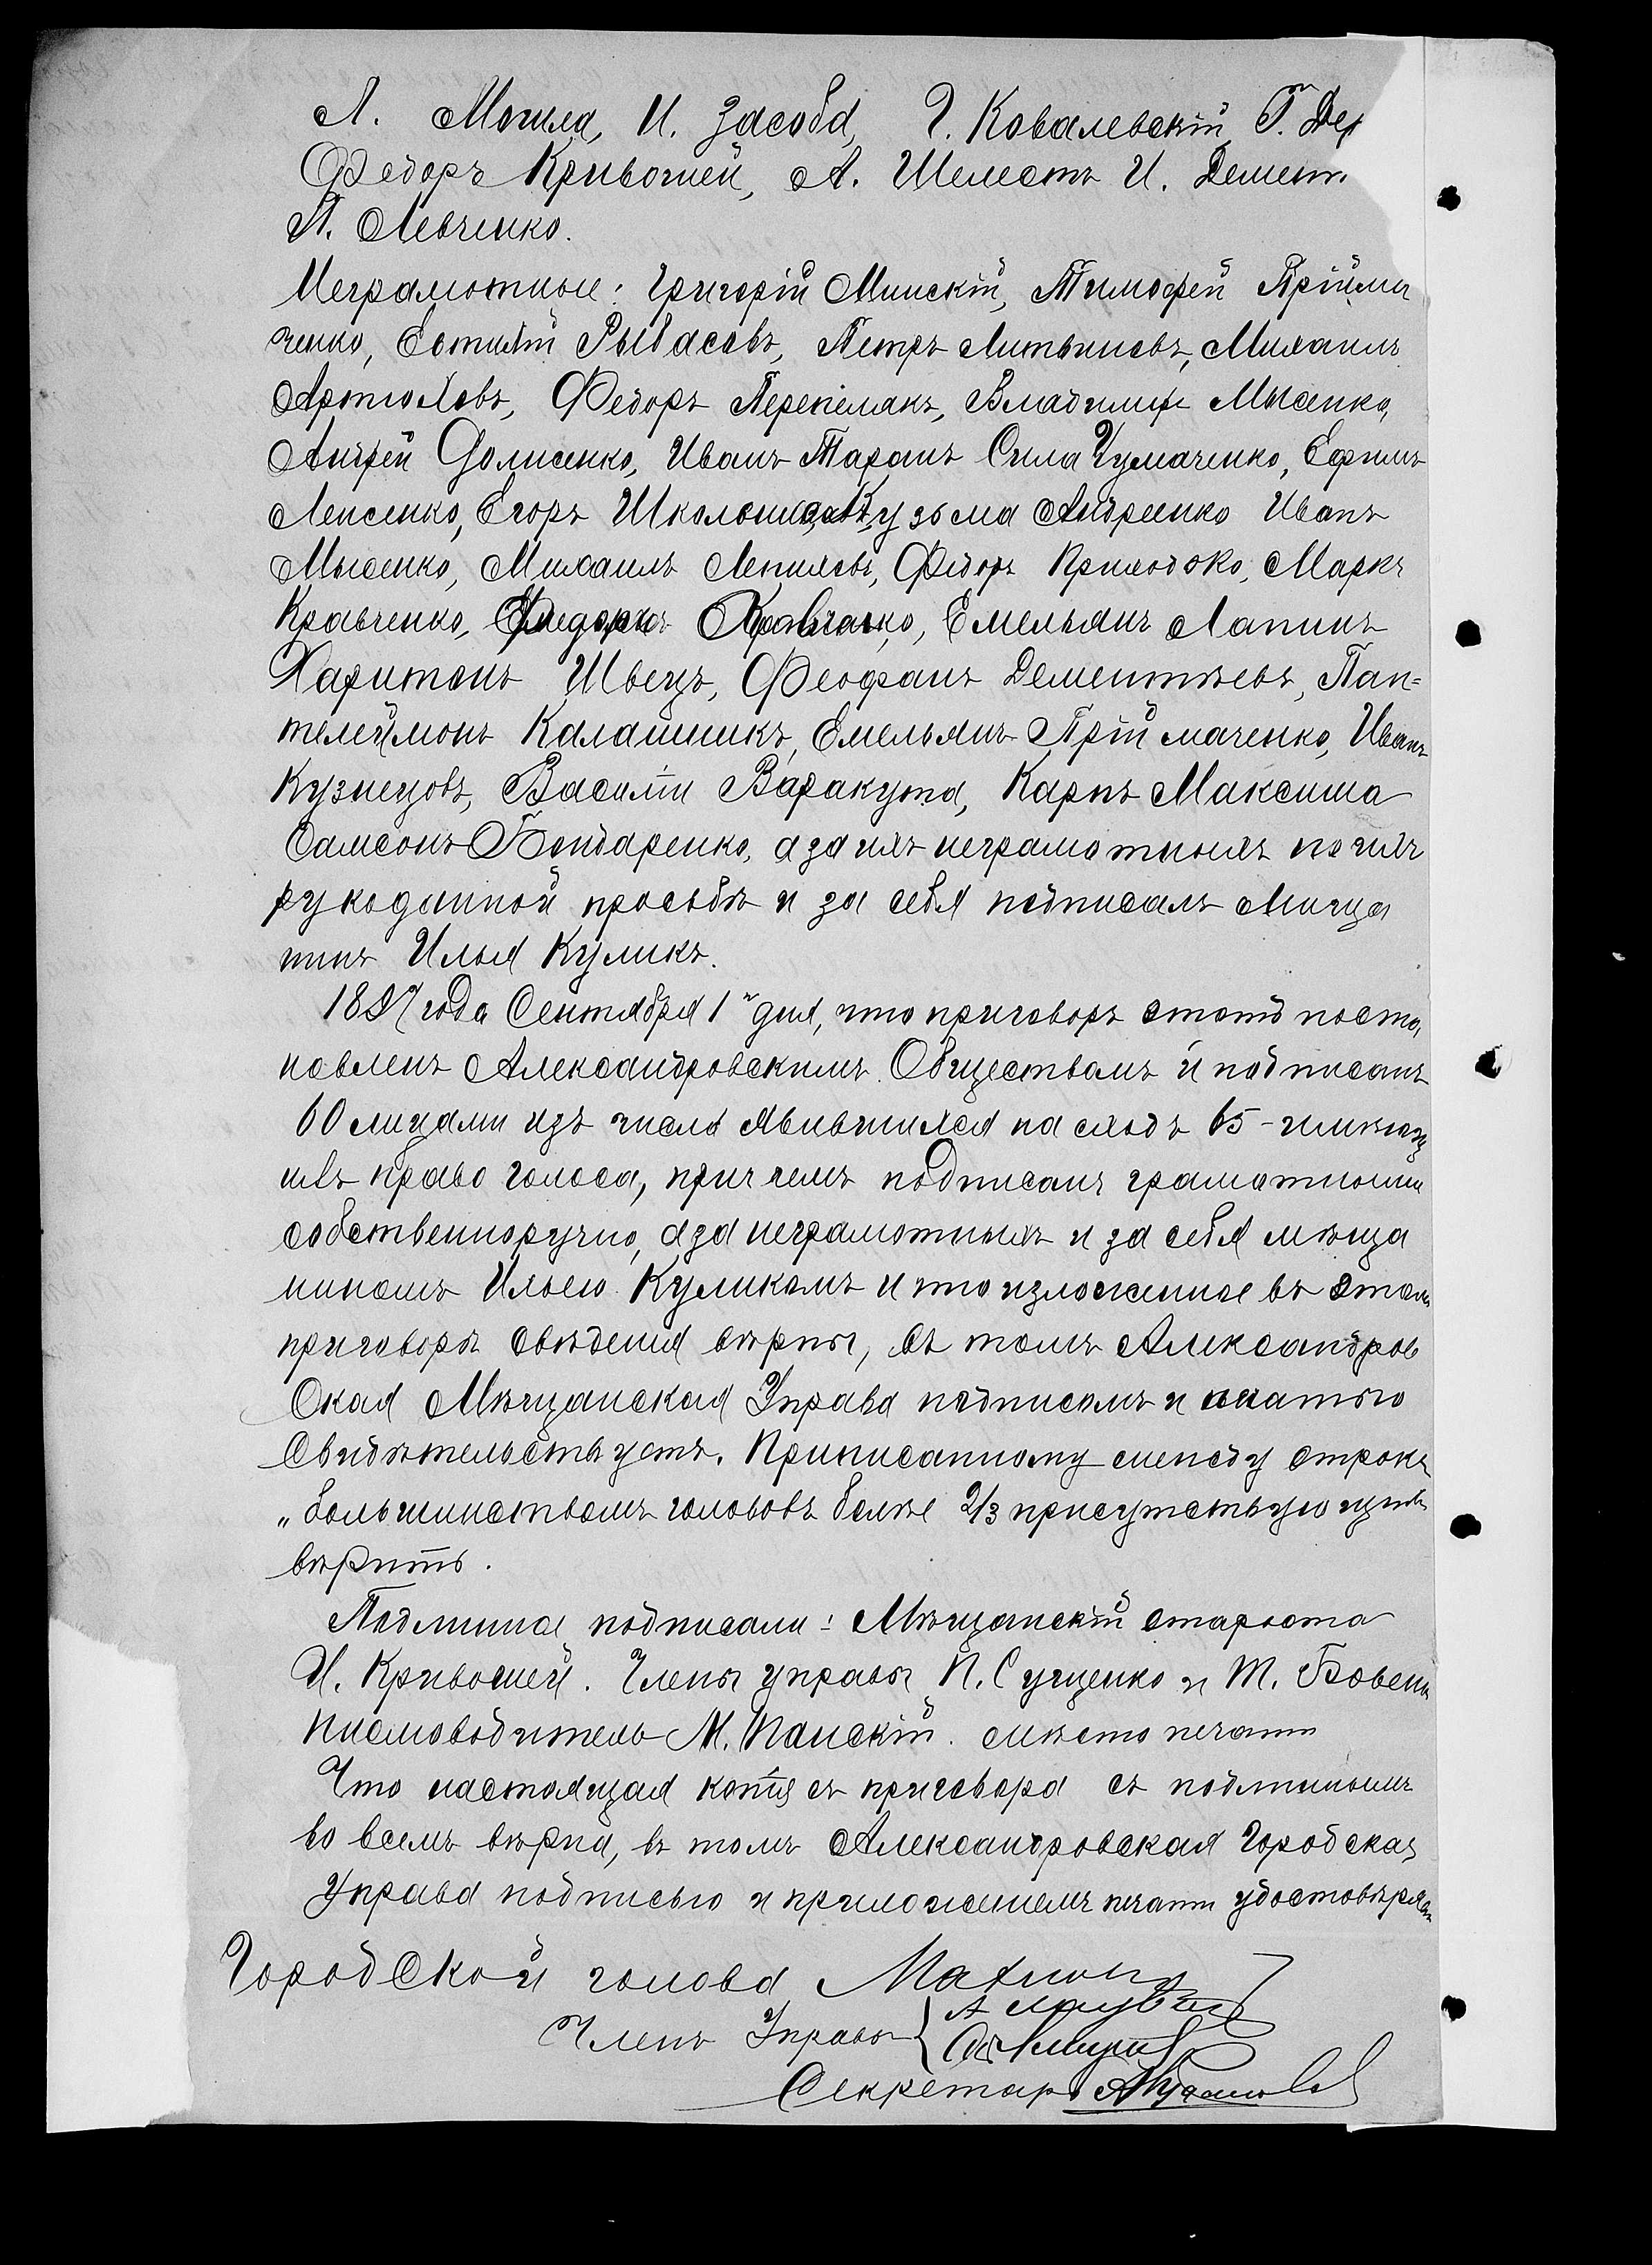 Л. Могила, И. Засоба, Г. Ковалевскій, Г. Де
Ѳедоръ Кривошей, А. Шелестъ И. Демент
П. Левченко.
Неграмотные: Григорій Минскій, Тимофей Прійма
ченко, Евтихій Рыбасовъ, Петръ Литвиновъ, Михаилъ
Артюховъ, Ѳедоръ Перепелякъ, Владимиръ Мысенко,
Андрей Долисенко, Иванъ Таранъ Сила Чумаченко, Ефимъ
Лепсенко, Егоръ Кузьма Андреенко Иванъ
Мысенко, Михаилъ Лепиховъ, Ѳедоръ Приходько, Маркъ
Кравченко, Кравченко, Емельянъ Лапинъ
Харитонъ Швецъ, Ѳеофанъ Дементьевъ, Пан=
телеймонъ Калашникъ, Емельянъ Пріймаченко, Иванъ
Кузнецовъ, Василій Варакута, Карпъ Максиша
Самсонъ Бондаренко, а за ихъ неграмотныхъ по ихъ
рукоданной просьбѣ и за себя подписалъ мѣща
нинъ Илья Куликъ.
1897 года Сентября 1 дня, что приговоръ этотъ поста,
новленъ Александровскимъ Обществомъ и подписанъ
60 лицами изъ числа явившихся на сходъ 65-ти имѣющ
ихъ право голоса, при чемъ подписанъ грамотными
собственноручно, а за неграмотныхъ и за себя мѣща
ниномъ Ильею Куликомъ и что изложенное въ этомъ
приговорѣ свѣдения вѣрны, въ томъ Александров
ская Мѣщанская Управа подписомъ и печатью
Свидѣтельствуетъ. Приписанному между строкъ
„большинствомъ голосовъ болѣе 2/3 присутствующихъ
вѣрить.
Подлинное подписали: Мѣщанскій староста
И. Кривошей. Члены управы П. Сущенко и Т. Бовенк
Писмоводитель М. Панскій. мѣсто печати
Что настоящая копія съ приговора съ подлиннымъ
во всемъ вѣрна, въ томъ Александровская Городская
Управа подписью и приложениемъ печати удостовѣряетъ
Городской голова
Члены Управы
Секретарь